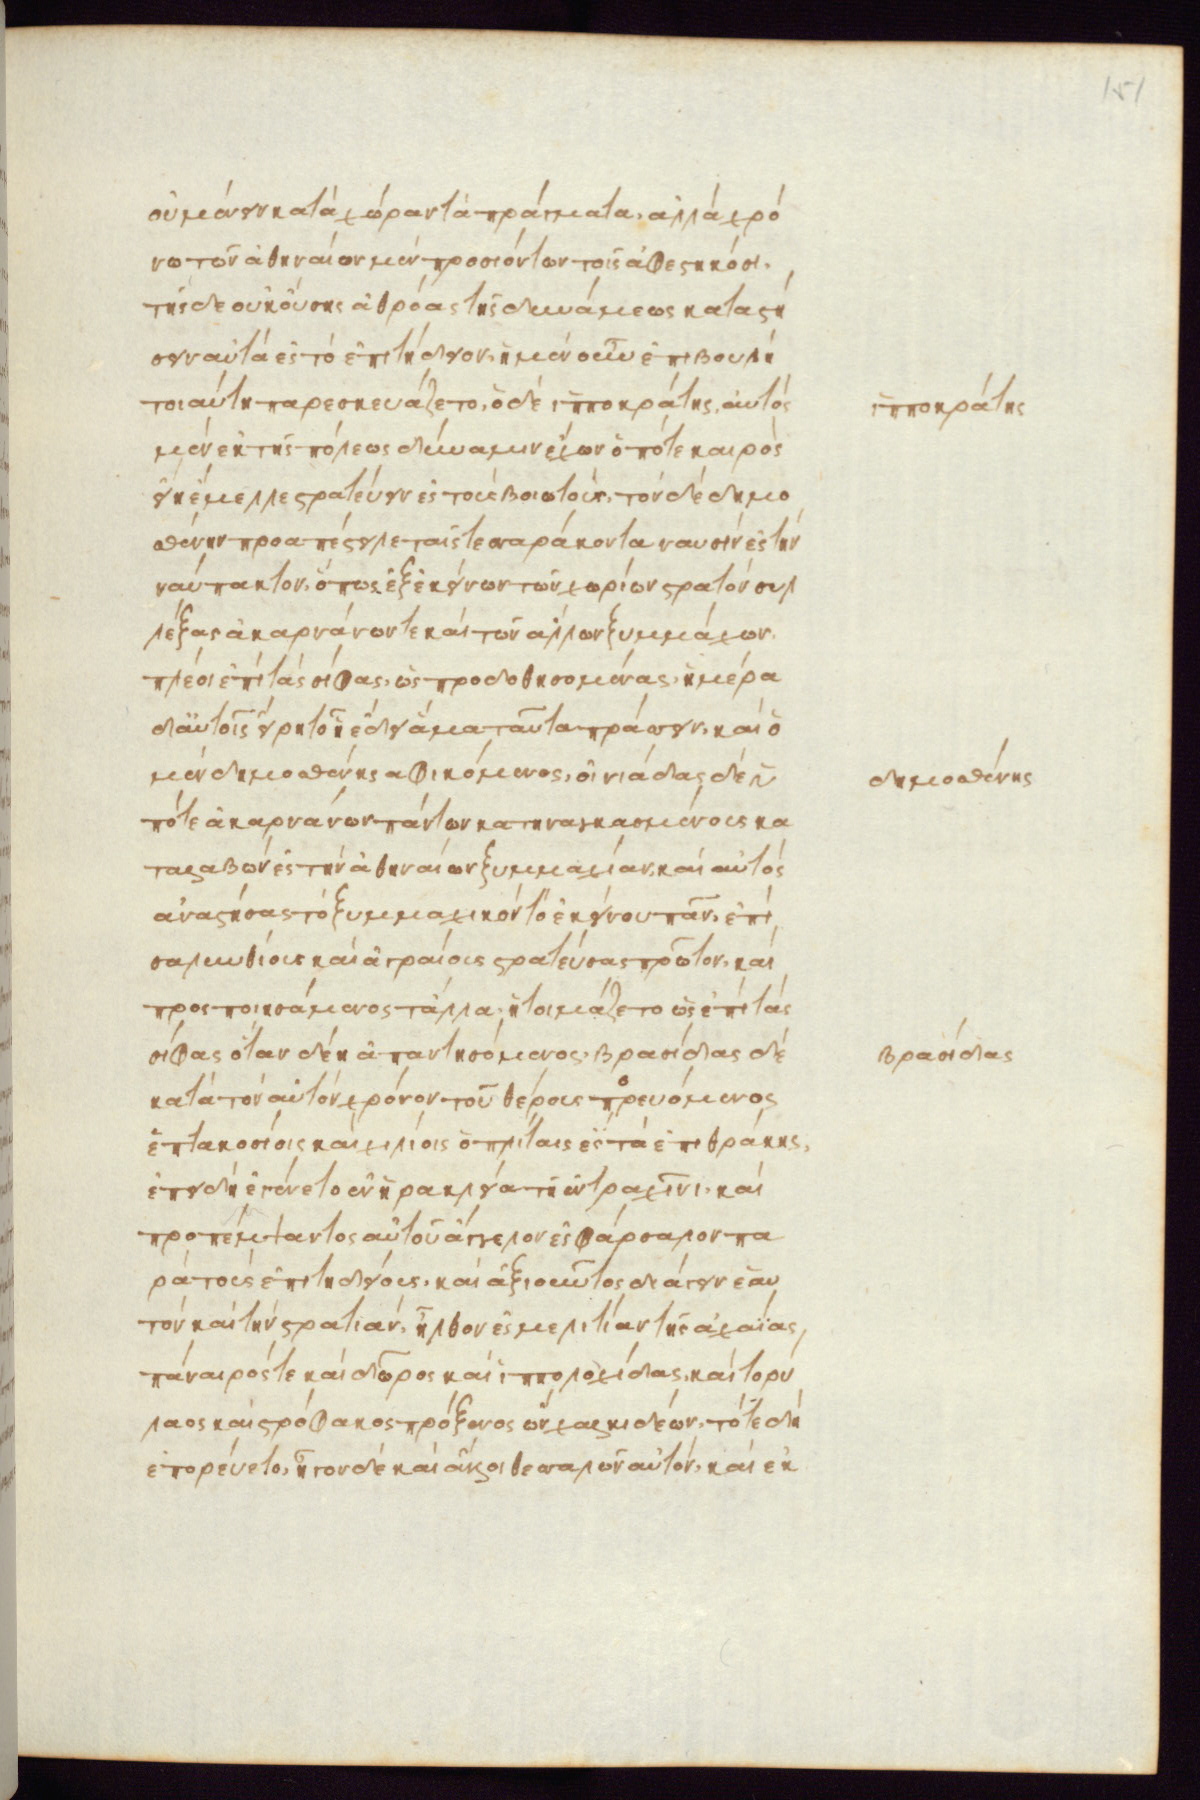 151
οὐ μένειν κατὰ χώραν τὰ πράγματα, ἀλλὰ χρό
νω τῶν ἀθηναίων μὲν προσιόντων τοῖς ἀφεστηκόσι,
τῆς δὲ οὐκ οὔσης ἀθρόας τῆς δυνάμεως καταστή
σειν αὐτὰ ἐς τὸ ἐπιτήδειον. ἡ μὲν οὖν ἐπιβουλὴ
τοιαύτη παρεσκευάζετο. ὁ δὲ ἱπποκράτης, αὐτὸς
ἱπποκράτης
μὲν ἐκ τῆς πόλεως δύναμιν ἔχων ὁπότε καιρὸς
εἴη ἔμελλε στρατεύειν ἐς τοὺς βοιωτούς. τὸν δὲ δημο
σθένην προαπέστειλε ταῖς τεσσαράκοντα ναυσὶν ἐς τὴν
ναύπακτον. ὅπως ἐξ ἐκείνων τῶν χωρίων στρατὸν συλ
λέξας ἀκαρνάνων τε καὶ τῶν ἄλλων ξυμμάχων,
πλέοι ἐπὶ τὰς σίφας, ὡς προδοθησομένας. ἡμέρα
δ' αὐτοῖς εἴρητο ἧ ἔδει ἅμα ταῦτα πράσσειν. καὶ ὁ
μὲν δημοσθένης ἀφικόμενος, οἰνιάδας δὲ ὑ
δημοσθένης
πό τε ἀκαρνάνων πάντων κατηναγκασμένους κα
ταλαβὼν ἐς τὴν ἀθηναίων ξυμμαχίαν, καὶ αὐτὸς
ἀναστήσας τὸ ξυμμαχικὸν τὸ ἐκείνου πᾶν, ἐπὶ
σαλυνθίους καὶ ἀγραίους στρατεύσας πρῶτον, καὶ
προσποιησάμενος τἄλλα, ἡτοιμάζετο ὡς ἐπὶ τὰς
σίφας ὅταν δέη ἀπαντησόμενος. βρασίδας δὲ
βρασίδας
κατὰ τὸν αὐτὸν χρόνον τοῦ θέρους πορευόμενος
ἑπτακοσίοις καὶ χιλίοις ὁπλίταις ἐς τὰ ἐπὶ θράκης,
ἐπειδὴ ἐγένετο ἐν ἡρακλεία τῆ ἐν τραχῖνι, καὶ
προπέμψαντος αὐτοῦ ἄγγελον ἐς φάρσαλον πα
ρὰ τοὺς ἐπιτηδείους. καὶ ἀξιοῦντος διάγειν ἑαυ
τὸν καὶ τὴν στρατιὰν, ἦλθον ἐς μελιτίαν τῆς ἀχαΐας,
πάναιρός τε καὶ δῶρος καὶ ἱππολοχίδας, καὶ τορύ
λαος καὶ στρόφακος πρόξενος ὢν χαλκιδέων, τότε δὴ
ἐπορεύετο. ἦγον δὲ καὶ ἄλλοι θεσσαλῶν αὐτὸν, καὶ ἐκ